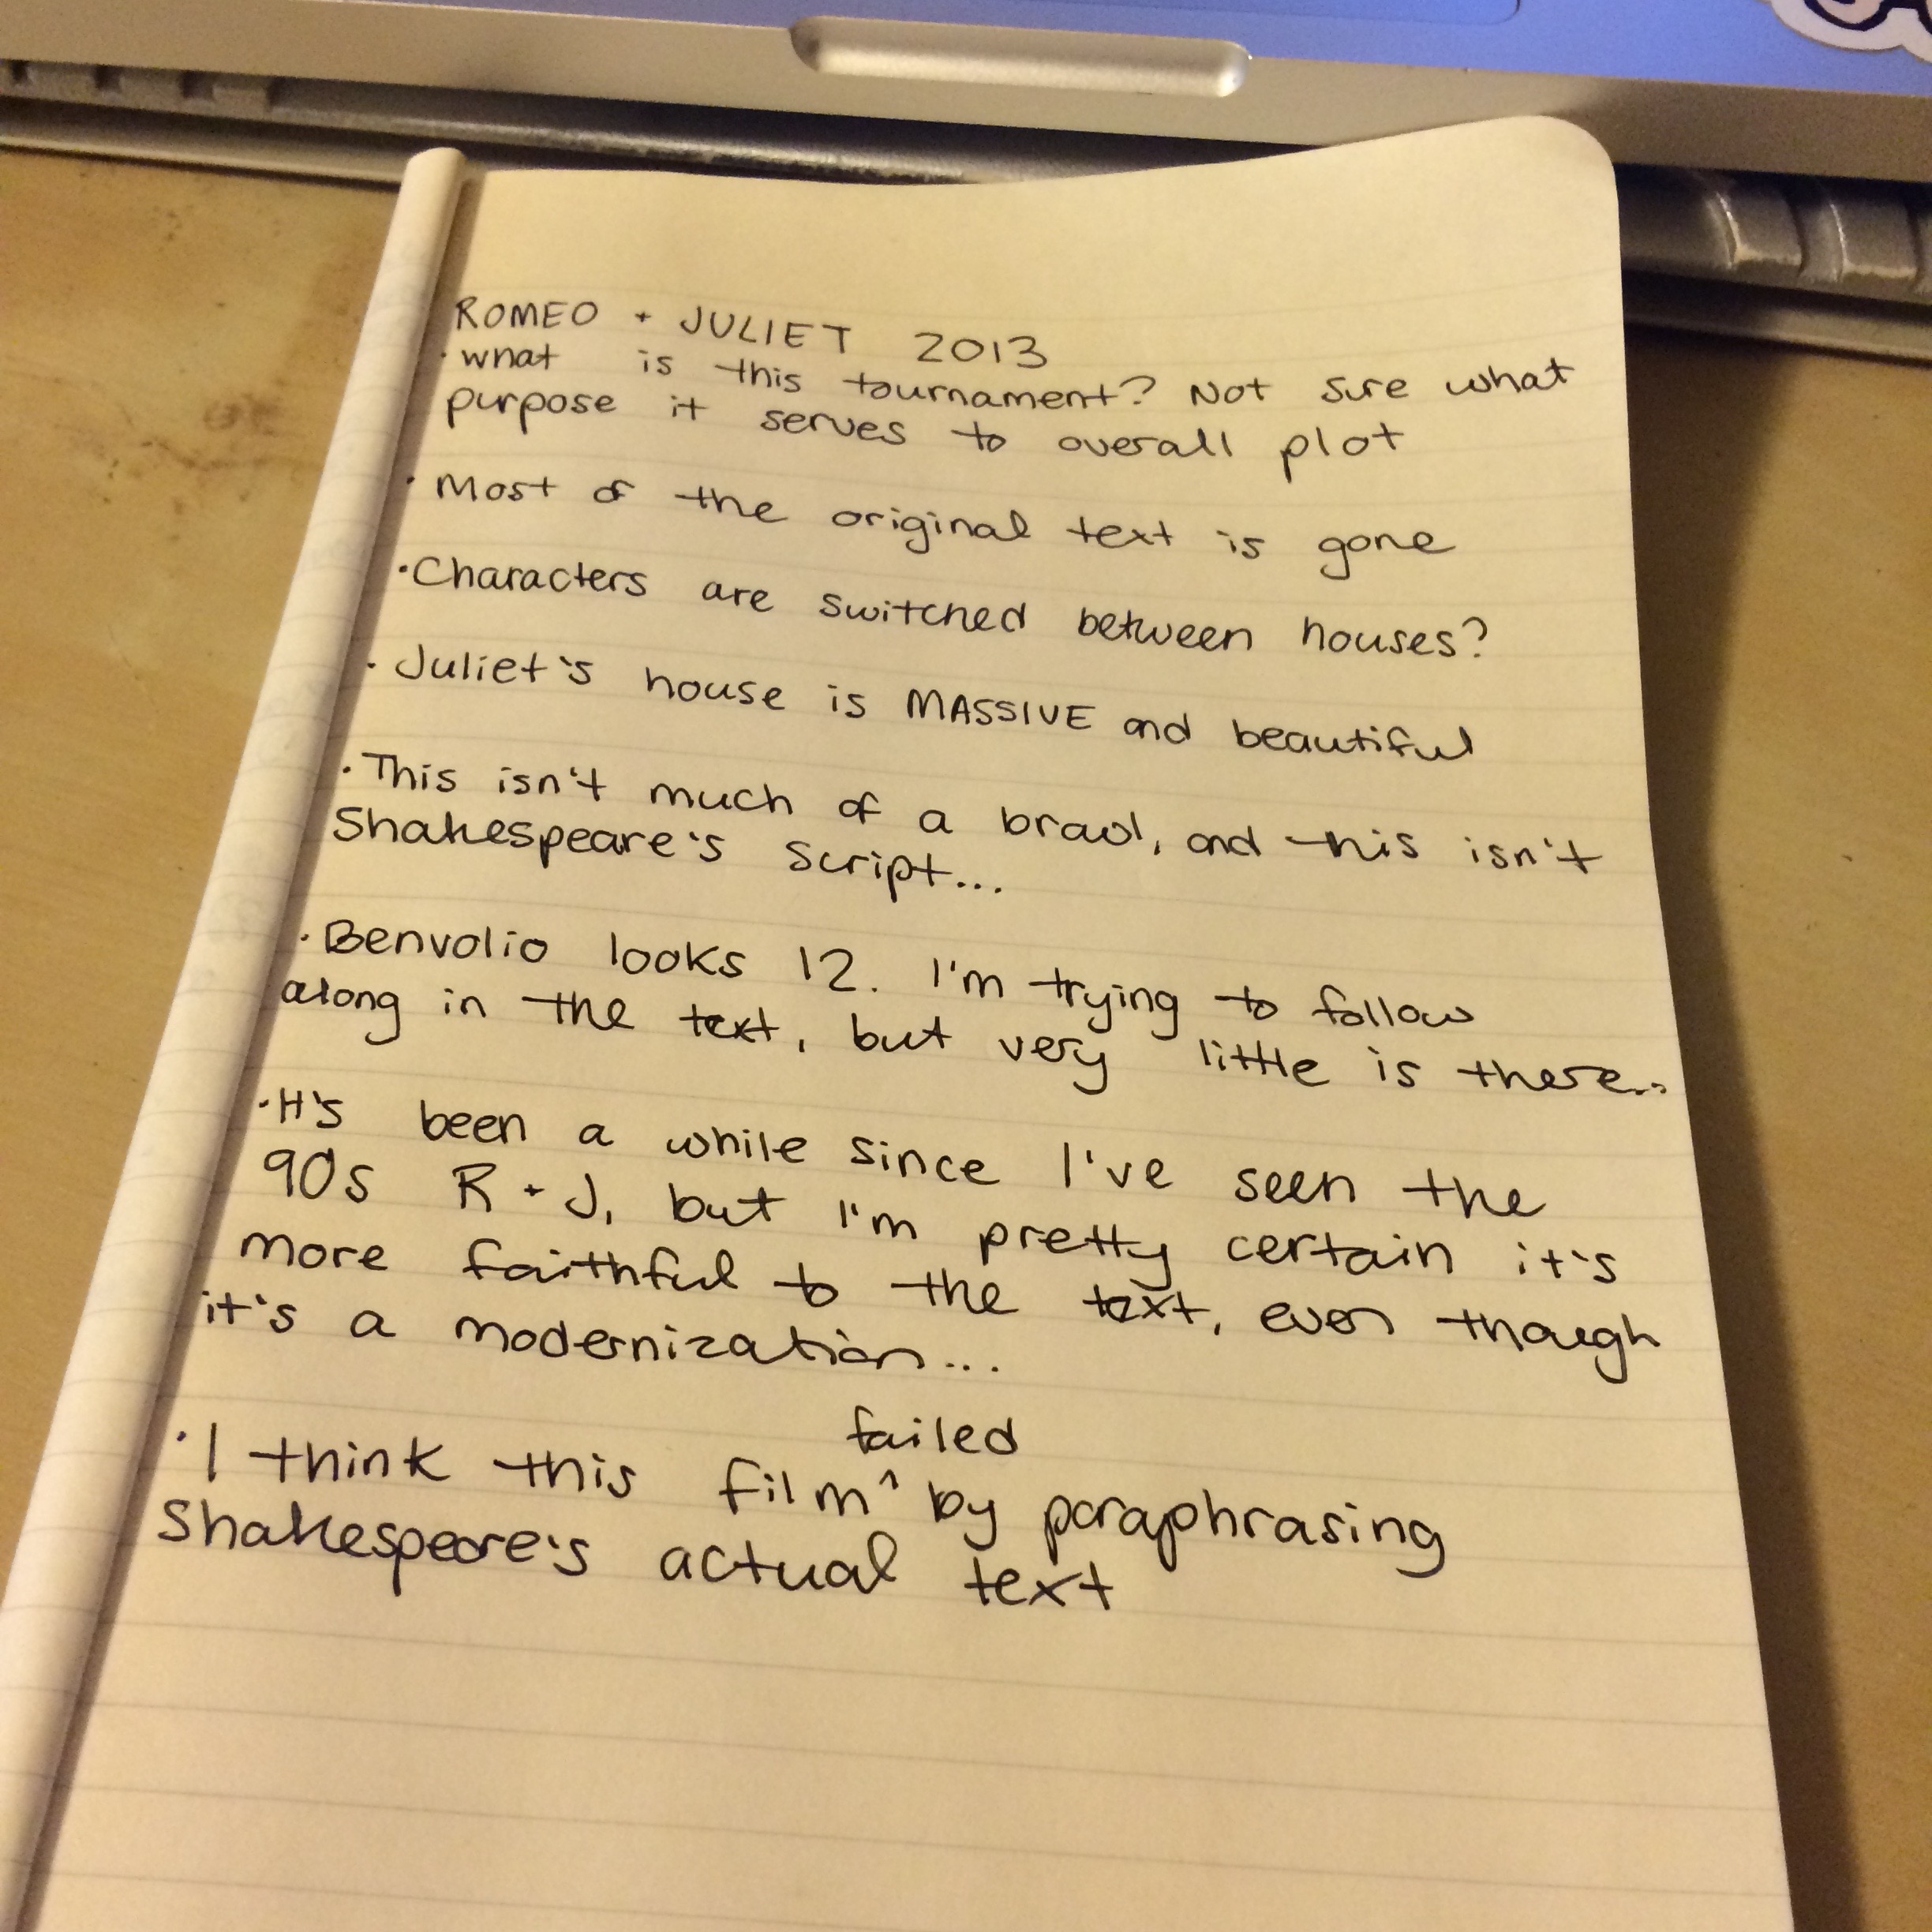 ROMEO + JULIET 2013
· what is this tournament? Not sure what
purpose it serves to overall plot
· Most of the original text is gone
· Characters are switched between houses?
· Juliet's house is MASSIVE and beautiful
· This isn't much of a brawl, and this isn't
Shakespeare's script...
· Benvolio looks 12. I'm trying to follow
along in the text, but very little is there...
· It's been a while since I've seen the
90s R + J, but I'm pretty certain it's
more faithful to the text, even though
it's a modernization...
failed
· I think this film ^ by paraphrasing
Shakespeare's actual text